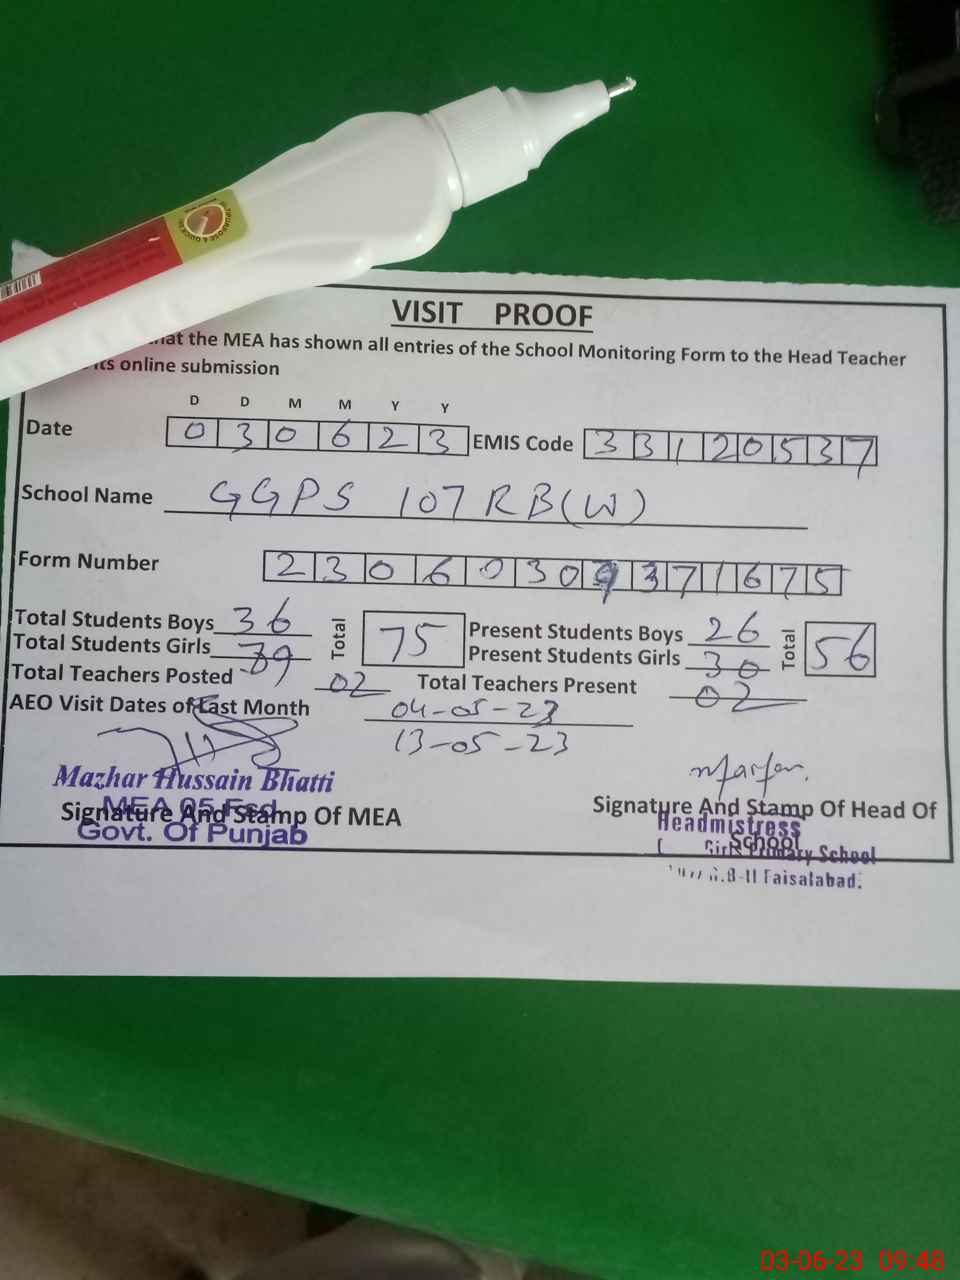 VISIT PROOF
that the MEA has shown all entries of the School Monitoring Form to the Head Teacher
its online submission
D D M M Y Y
Date 0 3 0 6 2 3 EMIS Code 3 3 1 2 0 5 3 7
School Name GGPS 107 RB(W)
Form Number 2 3 0 6 0 3 0 9 3 7 1 6 7 5
Total Students Boys 36 Total 75 Present Students Boys 26 Total 56
Total Students Girls 39 Present Students Girls 30
Total Teachers Posted 02 Total Teachers Present 02
AEO Visit Dates of Last Month 04-05-23
13-05-23
Mazhar Hussain Bhatti
MEA 05 Fsd
Signature And Stamp Of MEA
Govt. Of Punjab
Signature And Stamp Of Head Of
School
Headmistress
Girls Primary School
Faisalabad.
03-06-23 09:48